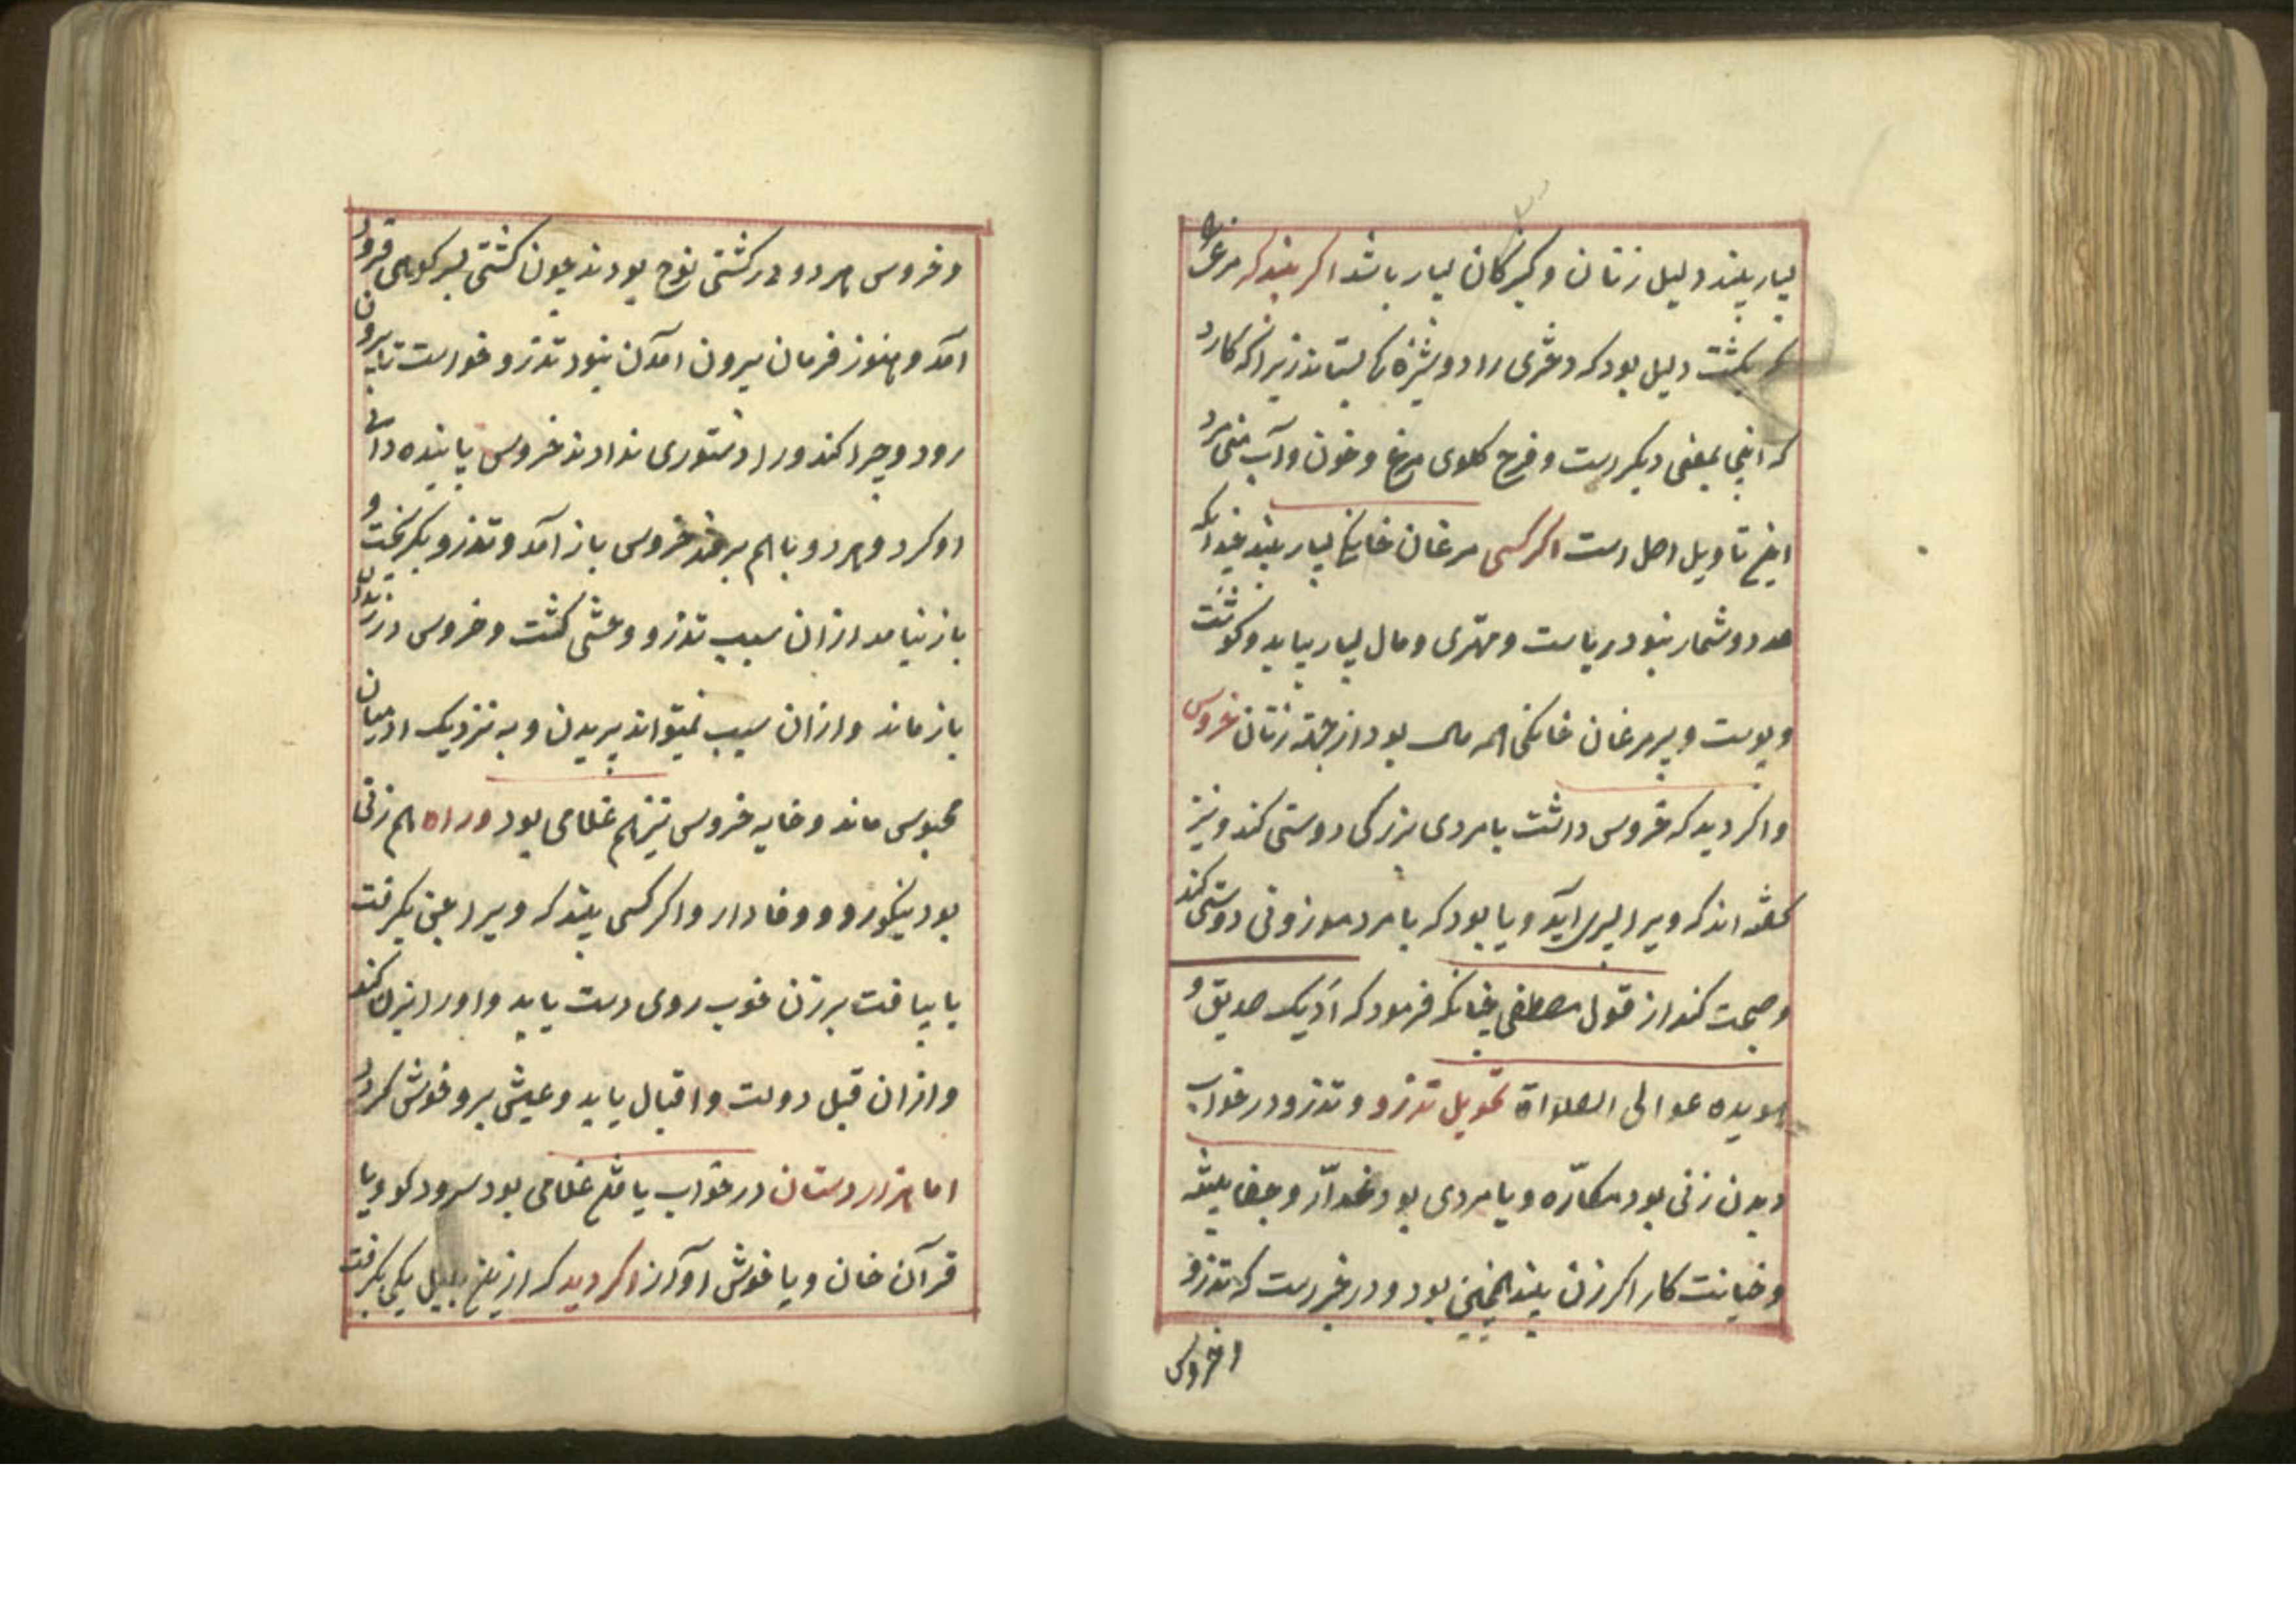 بسیار بیند دلیل زنان و کنیزکان بسیار باشد اگر بیند که مرغی را
بکشت دلیل بود که دختری را دوشیزه کی بستاند زیرا که کارد
که اینجا بمعنی دیگرست و فرج کلوی مرغ و خون و آب منی مرد
تاویل اصل است اگر کسی مرغان خانکی بسیار بیند چندانکه
عدد و شمار نبود ریاست و مهتری و مال بسیار بیابد و کوشت
و پوست و پر مرغان خانکی همه مال بود از جهة زنان خروس
و اگر دید که خروس داشت با مردی بزرکی دوستی کند و نیز
کفته اند که ویرا پسری آید و یا بود که با مرد موزونی دوستی کند
و صحبت کند از قول مصطفی چنانکه فرمود که آدیک صدیق و
یویده عوالی الصلواة تحویل تذرو و تذرو در خواب
دیدن زنی بود مکاره و یا مردی بود غدار و جفا پیشه
و خیانت کار اگر زن بیند همچنین بود و در خبر است که تذرو
و خروس
و خروس هر دو در کشتی نوح بودند چون کشتی بسر کوهی فرود
آمد و هنوز فرمان بیرون آمدن نبود تذرو خواست تا بیرون
رود و چرا کند ورا دستوری ندادند خروس پاینده دانی
او کرد و هر دو با هم برفتند خروس باز آمد و تذرو بکریخت و
باز نیامد از ان سبب تذرو وحشی کشت و خروس در زندان
باز ماند و از ان سبب نمیتواند پریدن و به نزدیک ادمیان
محبوس ماند و خایه خروس نیز هم غلامی بود و راه هم زنی
بود نیکورو و وفادار و اگر کسی بیند که ویرا عین بکرفت
یا بیافت بر زن خوب روی دست یابد و اورا بزنی کند
و از ان قبل دولت و اقبال یابد و عیش برو خوش کردد
اما هزار دستان در خواب یافتن غلامی بود سرود کو و یا
قرآن خان و یا خوش آواز اگر دید که ازین بلبل یکی بکرفت